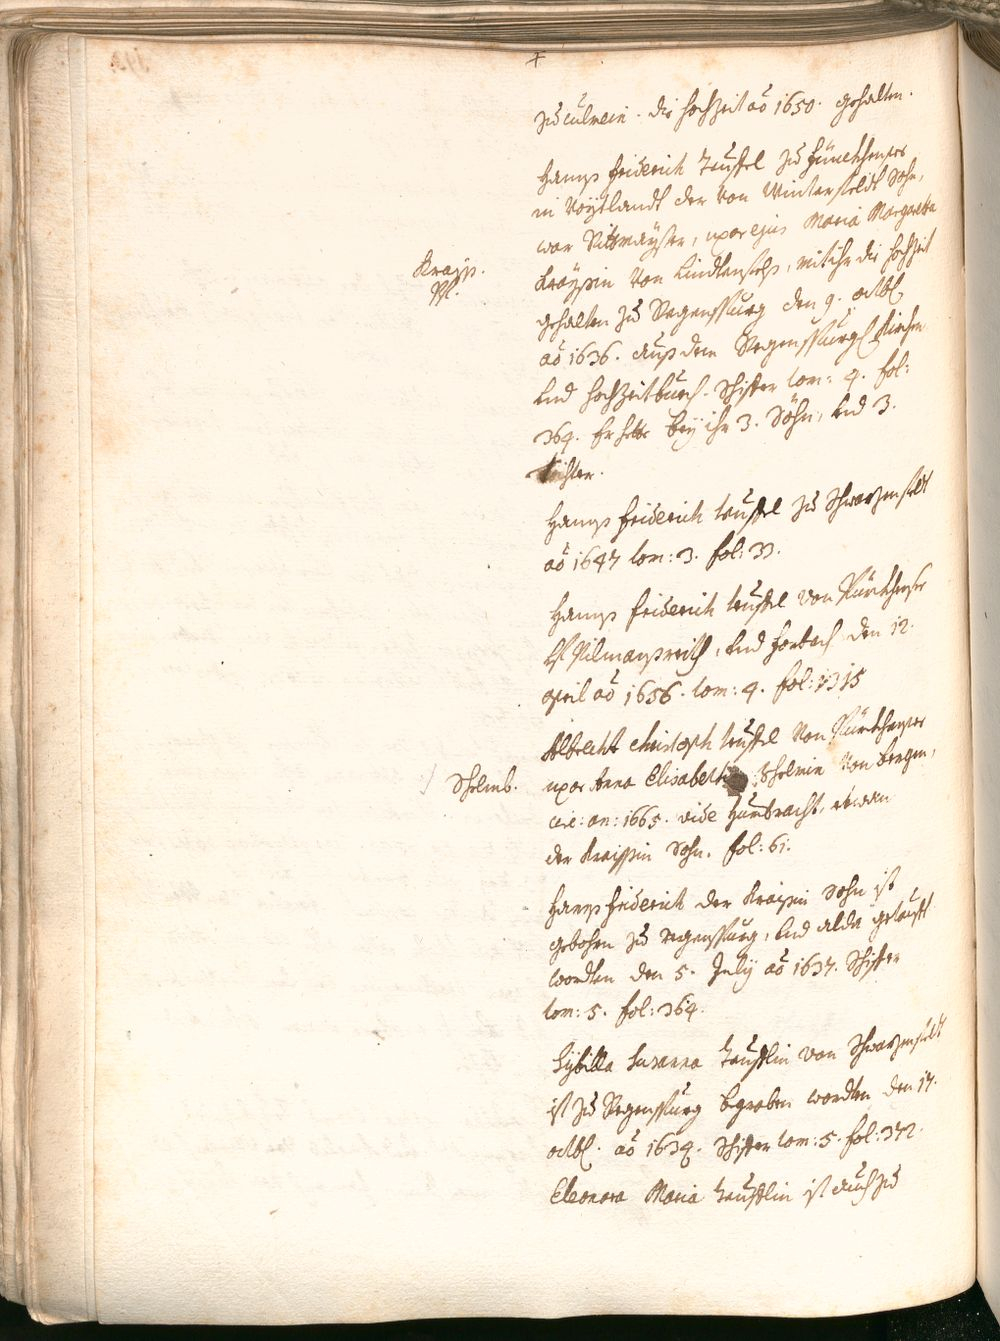 zu Culmein. die hochzeit aō 1650. gehalten.
Hanns Friderich Teuffel zu Pürckhensee
in Voytlandt der von Wintersfeldt Sohn,
war Rittmayster, uxor ejus Maria Margretha
Krayss.
Kräyssin von Lindtenfels, mit ihr die hochzeit
gehalten zu Regenspurg den 9. octbr.
aō 1636. auss dem Regenspurg. Kirchen
und hochzeitbuech. Schiffer tom: 4. fol:
364. Er hette bey ihr 3. Söhn, und 3.
töchter.
Hanns Friderich teuffel zu Schwarzenfeldt
aō 1647 tom: 3. fol: 33.
Hanns Friderich teuffel von Pürckhensee
uf Pilmanssreith, und Forbach den 12.
april aō 1656. tom: 4. fol: 1315
Albrecht Christoph teuffel von Pürckhensee
Schelmb.
uxor Anna Elisabetha Schelmin von Bergen,
an: 1665. vide Humbracht,
der Kraissin Sohn. fol: 61.
Hanns Friderich der Kraissin Sohn ist
gebohrn zu Regenspurg, und alda getaufft
wordten den 5. July aō 1637. Schiffer
tom: 5. fol: 364.
Sybilla Susanna Teufflin von Schwarzenfeldt
ist zu Regenspurg begraben wordten den 17.
octbr. aō 1639. Schiffer tom: 5. fol: 372.
Eleonora Maria Teufflin ist auch zu